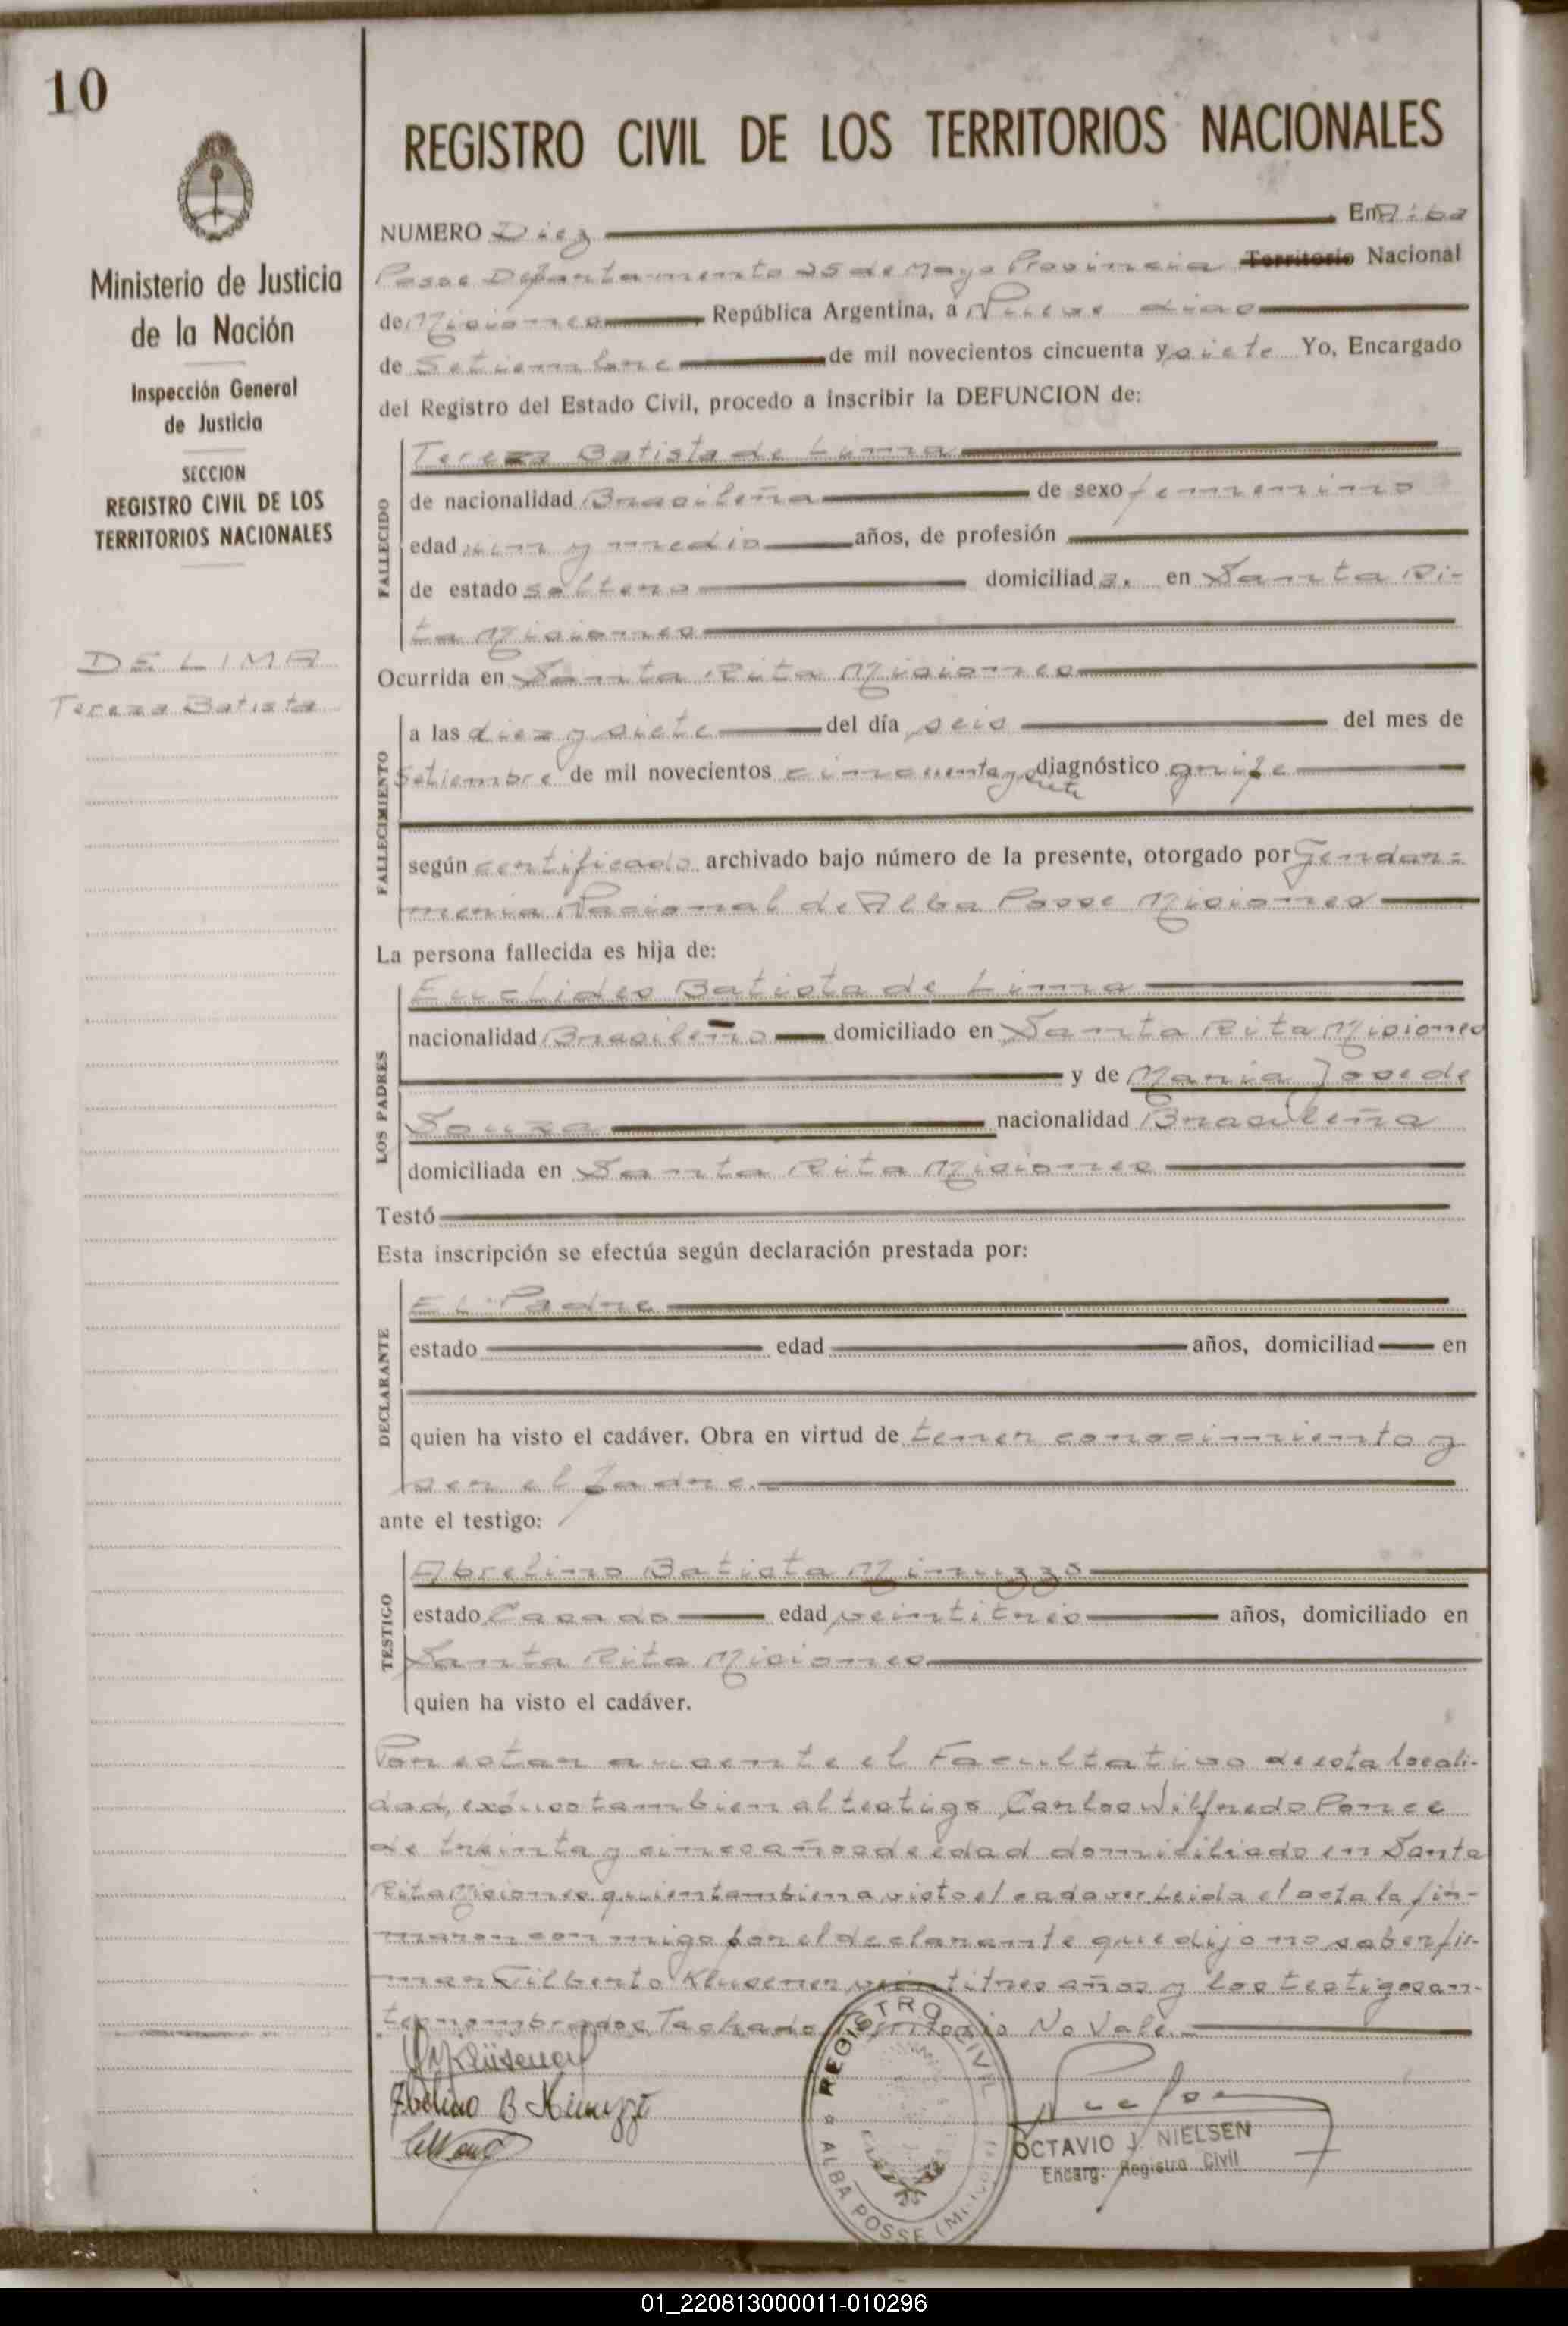 10
Ministerio de Justicia
de la Nación
Inspección General
de Justicia
SECCION
REGISTRO CIVIL DE LOS
TERRITORIOS NACIONALES
DE LIMA
Tereza Batista
REGISTRO CIVIL DE LOS TERRITORIOS NACIONALES
NUMERO Diez En Alba
Posse Departamento 25 de Mayo Provincia Territorio Nacional
de Misiones República Argentina, a Nueve dias
de Setiembre de mil novecientos cincuenta y siete Yo, Encargado
del Registro del Estado Civil, procedo a inscribir la DEFUNCION de:
FALLECIDO
Tereza Batista de Lima
de nacionalidad Brasileña de sexo femenino
edad un y medio años, de profesión
de estado soltera domiciliada. en Santa Ri-
ta Misiones
Ocurrida en Santa Rita Misiones
FALLECIMIENTO
a las diez y siete del día seis del mes de
Setiembre de mil novecientos cincuenta y siete diagnóstico gripe
según certificado archivado bajo número de la presente, otorgado por Gendar=
meria Nacional de Alba Posse Misiones
La persona fallecida es hija de:
LOS PADRES
Euclides Batista de Lima
nacionalidad Brasileño domiciliado en Santa Rita Misiones
y de Maria Jose de
Souza nacionalidad Brasileña
domiciliada en Santa Rita Misiones
Testó
Esta inscripción se efectúa según declaración prestada por:
DECLARANTE
El Padre
estado edad años, domiciliad en
quien ha visto el cadáver. Obra en virtud de tener conocimiento y
ser el padre.
ante el testigo:
TESTIGO
Abrelino Batista Minuzzo
estado Casado edad veintitres años, domiciliado en
Santa Rita Misiones
quien ha visto el cadáver.
Por estar ausente el Facultativo de esta locali-
dad, expuso tambien al testigo Carlos Wilfredo Ponce
de treinta y cinco años de edad domiciliado en Santa
Rita Misiones quien tambien a visto el cadaver. Leida el acta la fir-
maron conmigo por el declarante que dijo no saber fir-
mar Gilberto Klusener, veintitres años y los testigos an-
tes nombrados Tachado Territorio No Vale.
REGISTRO CIVIL
ALBA POSSE
OCTAVIO J. NIELSEN
Encarg. Registro Civil
01_220813000011-010296